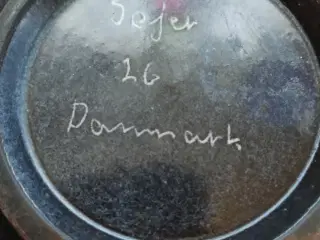 Sejer
26
Danmark